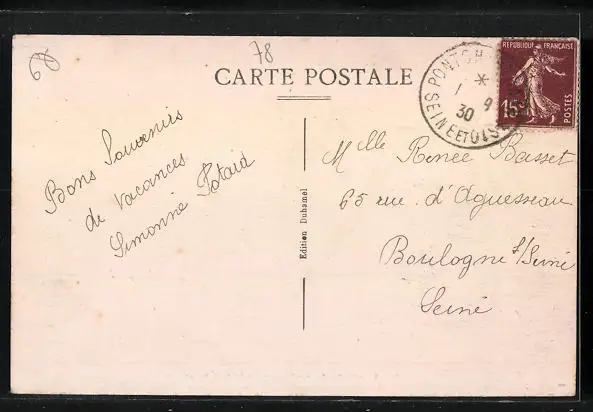 60
78
CARTE POSTALE
REPUBLIQUE FRANÇAISE
15c
POSTES
PONTCH
SEINE ET OISE
1 9
30
Bons Souvenirs
de vacances
Simonne
Edition Duhamel
Mlle Renée Basset
65 rue d'Aguesseau
Boulogne s/Seine
Seine